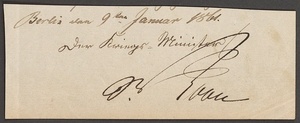 Berlin den 9ten Januar 1861.
Der Kriegs-Minister
v. Roon